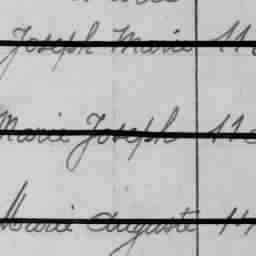 Joseph Marie 11
Marie Joseph 11
Marie Auguste 14